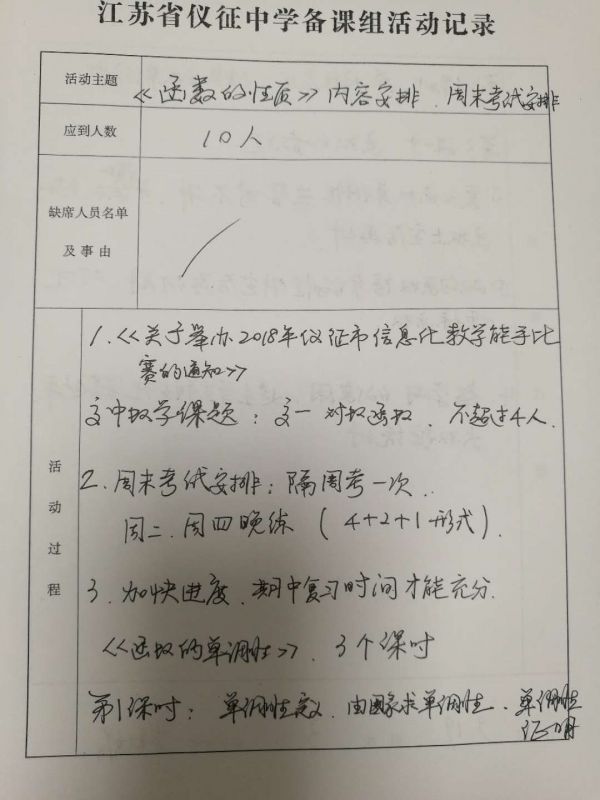 江苏省仪征中学备课组活动记录
活动主题
《函数的性质》内容安排、周末考试安排
应到人数
10人
缺席人员名单
及事由
活动过程
1.《关于举办2018年仪征市信息化教学能手比
赛的通知》
高中数学课题：高一 对数函数、不超过4人.
2.周末考试安排：隔周考一次.
周二、周四晚练（4+2+1形式）.
3.加快进度、期中复习时间才能充分.
《函数的单调性》、3个课时
第1课时：单调性定义、由图象求单调性、单调性
证明